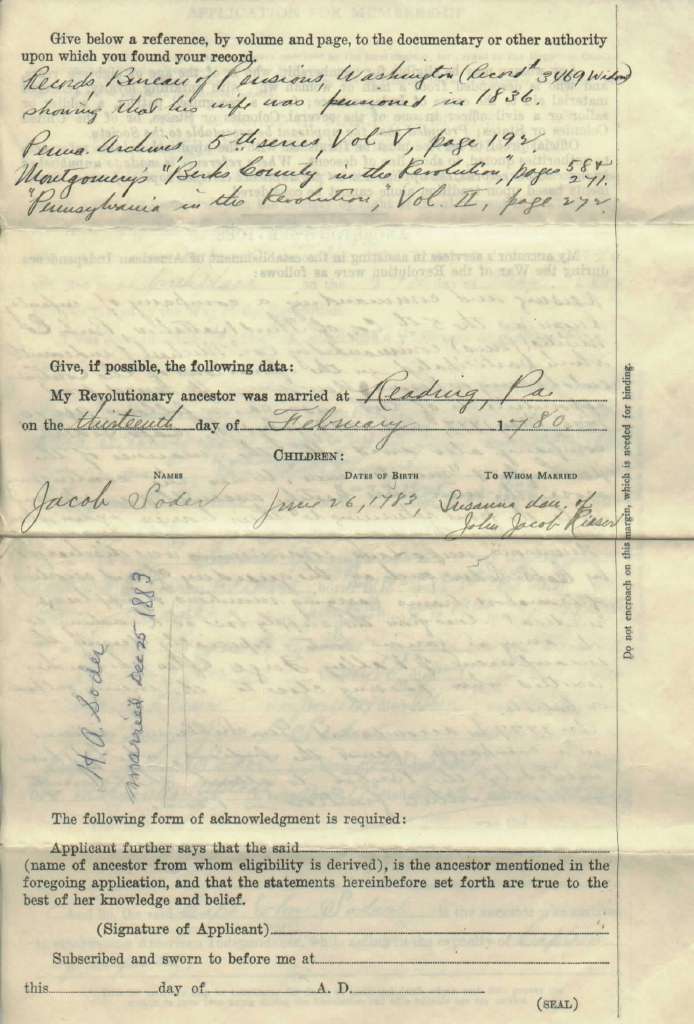 Give below a reference, by volume and page, to the documentary or other authority
upon which you found your record.
Records, Bureau of Pensions, Washington (Record # 3469 Widow)
showing that his wife was pensioned in 1836.
Penna. Archives 5th series, Vol V, page 192
Montgomery's "Berks County in the Revolution," pages 58 & 271.
"Pennsylvania in the Revolution," Vol. II, page 272
My ancestor's services in assisting in the establishment of American Independence
during the War of the Revolution were as follows:
Give, if possible, the following data:
My Revolutionary ancestor was married at Reading, Pa.
on the thirteenth day of February 1780.
CHILDREN:
NAMES DATES OF BIRTH TO WHOM MARRIED
Jacob Soder June 26, 1783, Susanna dau. of
John Jacob Rieser
H. A. Soder
married Dec 25 1883
Do not encroach on this margin, which is needed for binding.
The following form of acknowledgment is required:
Applicant further says that the said
(name of ancestor from whom eligibility is derived), is the ancestor mentioned in the
foregoing application, and that the statements hereinbefore set forth are true to the
best of her knowledge and belief.
(Signature of Applicant)
Subscribed and sworn to before me at
this day of A. D.
(SEAL)